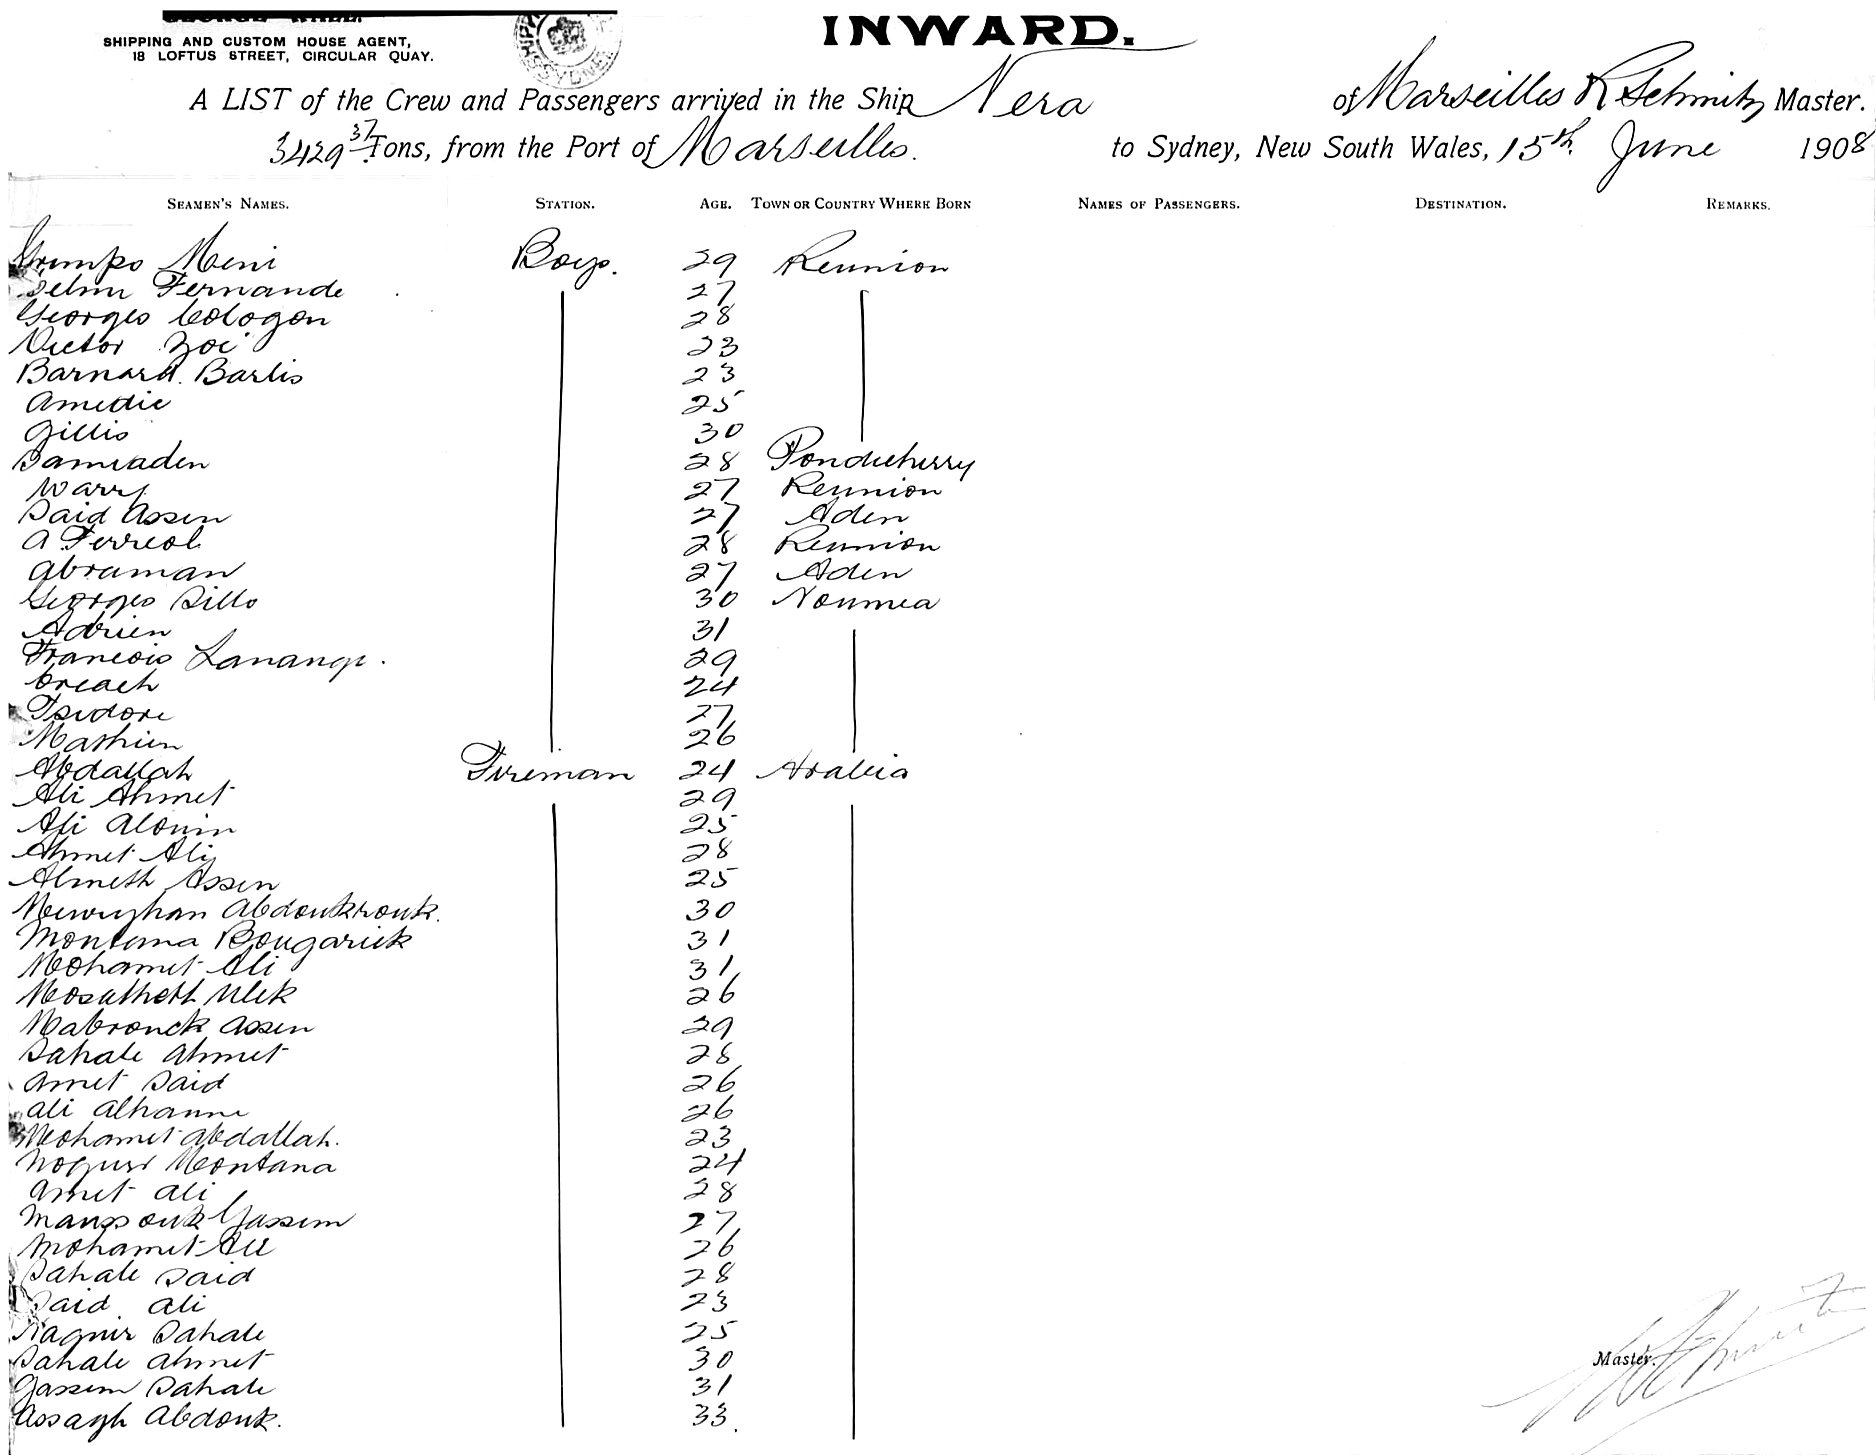 SHIPPING AND CUSTOM HOUSE AGENT,
18 LOFTUS STREET, CIRCULAR QUAY.
INWARD.
A LIST of the Crew and Passengers arrived in the Ship Nera of Marseilles R Schmitz Master.
3429 37 Tons, from the Port of Marseilles. to Sydney, New South Wales, 15th June 1908
SEAMEN'S NAMES. STATION. AGE. TOWN OR COUNTRY WHERE BORN NAMES OF PASSENGERS. DESTINATION. REMARKS.
Meni Boys. 29 Reunion
Fernande 27
Georges Cologon 28
Victor Zoe 23
Barnard. Barlis 23
Amedie 25
Gillis 30
Samraden 28 Pondicherry
Warry 27 Reunion
Said Assen 27 Aden
A Ferreol 28 Reunion
Abraman 27 Aden
Georges Sillo 30 Noumea
Adrien 31
Francois 29
Creach 24
Isidore 27
Mathieu 26
Abdallah Fireman 24 Arabia
Ali Ahmet 29
Ali Alouin 25
Ahmet Ali 28
Ahmeth Assen 25
Abdoukrouk. 30
Bougarick 31
Mohamet Ali 31
26
Mabrouck Assen 29
Sahale Ahmet 28
Amet Said 26
Ali 26
Mohamet Abdallah. 23
Montana 24
Amet Ali 28
Manssouk Gassem 27
Mohamet Ali 26
Sahale Said 28
Said Ali 23
Sahale 25
Sahale Ahmet 30
Gassem Sahale 31
Assagh Abdouk. 33.
Master.